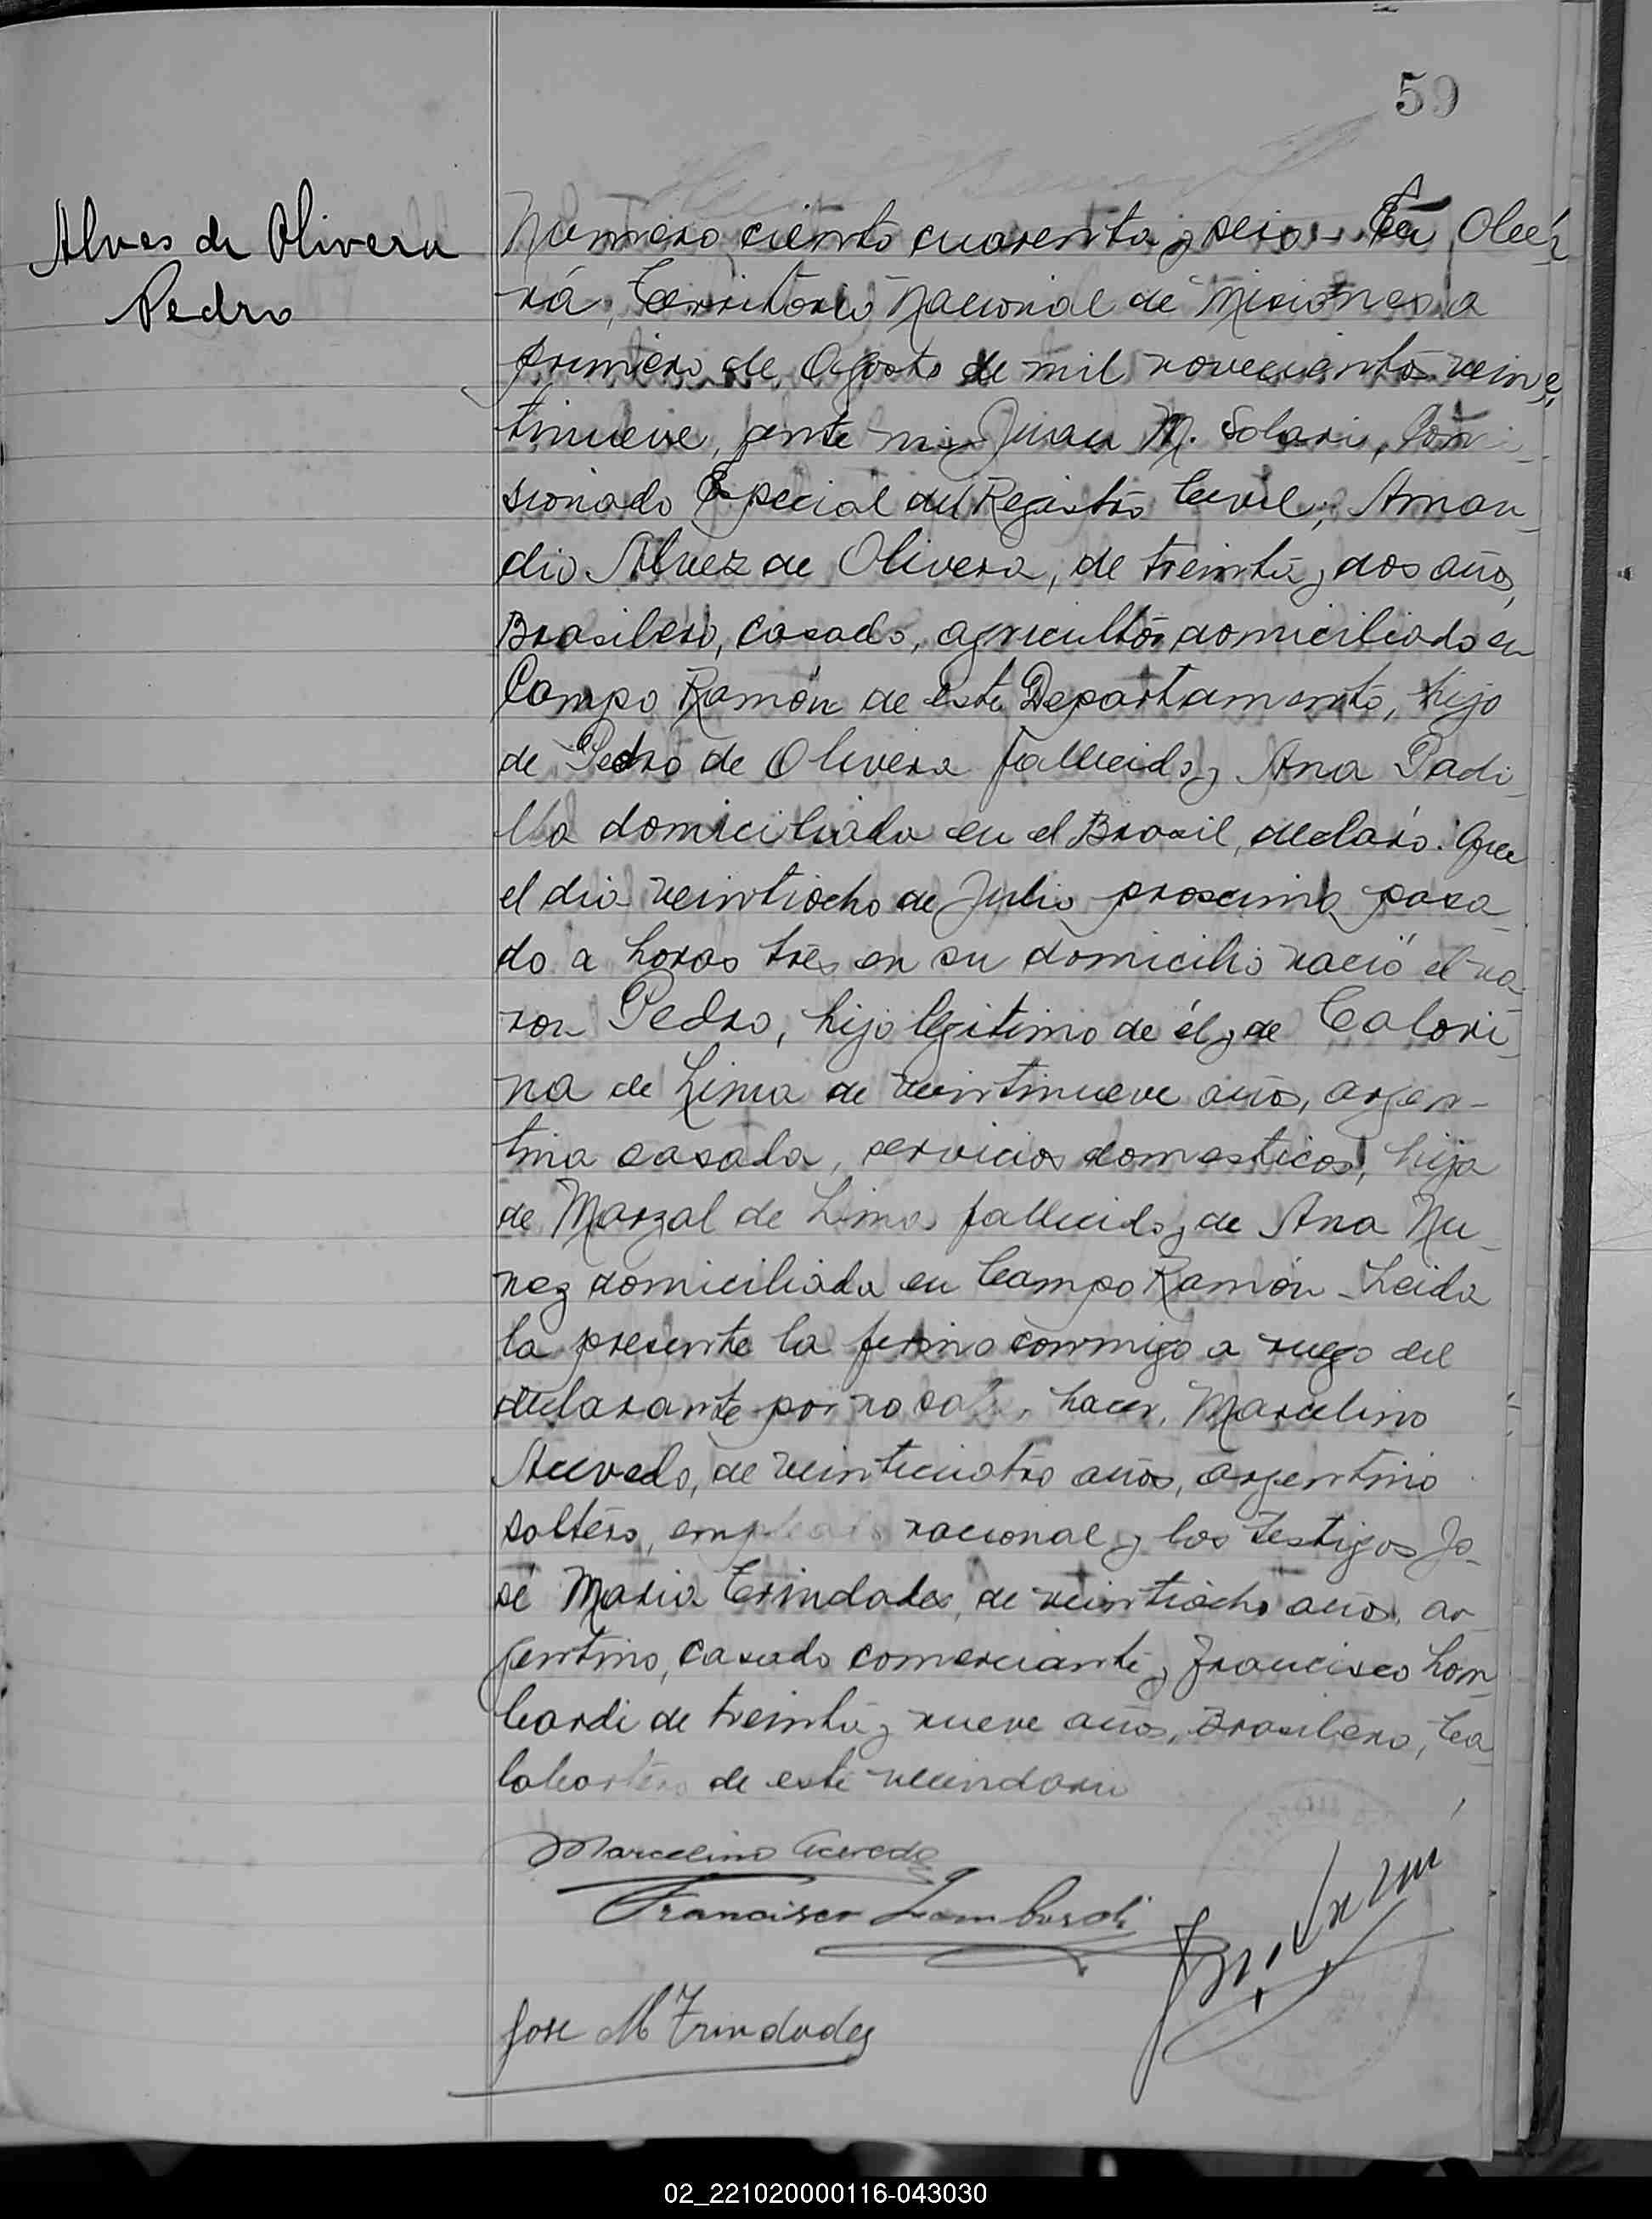 59
Alves de Olivera
Pedro
Numero ciento cuarenta y seis - En Obe-
rá, Territorio Nacional de Misiones a
primero de Agosto de mil novecientos vein-
tinueve, ante mi Juan M. Solari, Comi-
sionado Especial del Registro Civil, Aman-
dio Alvez de Olivera, de treinta y dos años,
Brasilero, casado, agricultor domiciliado en
Campo Ramón de este Departamento, hijo
de Pedro de Olivera fallecido y Ana Padi-
lla domiciliada en el Brasil, declaró: Que
el dia veintiocho de Julio proximo pasa-
do a horas tres en su domicilio nació el va-
ron Pedro, hijo legitimo de él y de Calori-
na de Lima de veintinueve años, argen-
tina casada, servicios domesticos, hija
de Marzal de Lima fallecido y de Ana Nu-
nez domiciliada en Campo Ramón - Leida
la presente la firmo conmigo a ruego del
declarante por no hacer, Marcelino
Acevedo, de veinticuatro años, argentino
soltero, empleado nacional y los testigos Jo-
sé Maria Trindades, de veintiocho años, ar-
gentino, casado comerciante y Francisco Lom-
bardi de treinta y nueve años, Brasilero,
de este vecindario
Marcelino Acevedo
Francisco Lombardi
Jose M Trindades
02_221020000116-043030